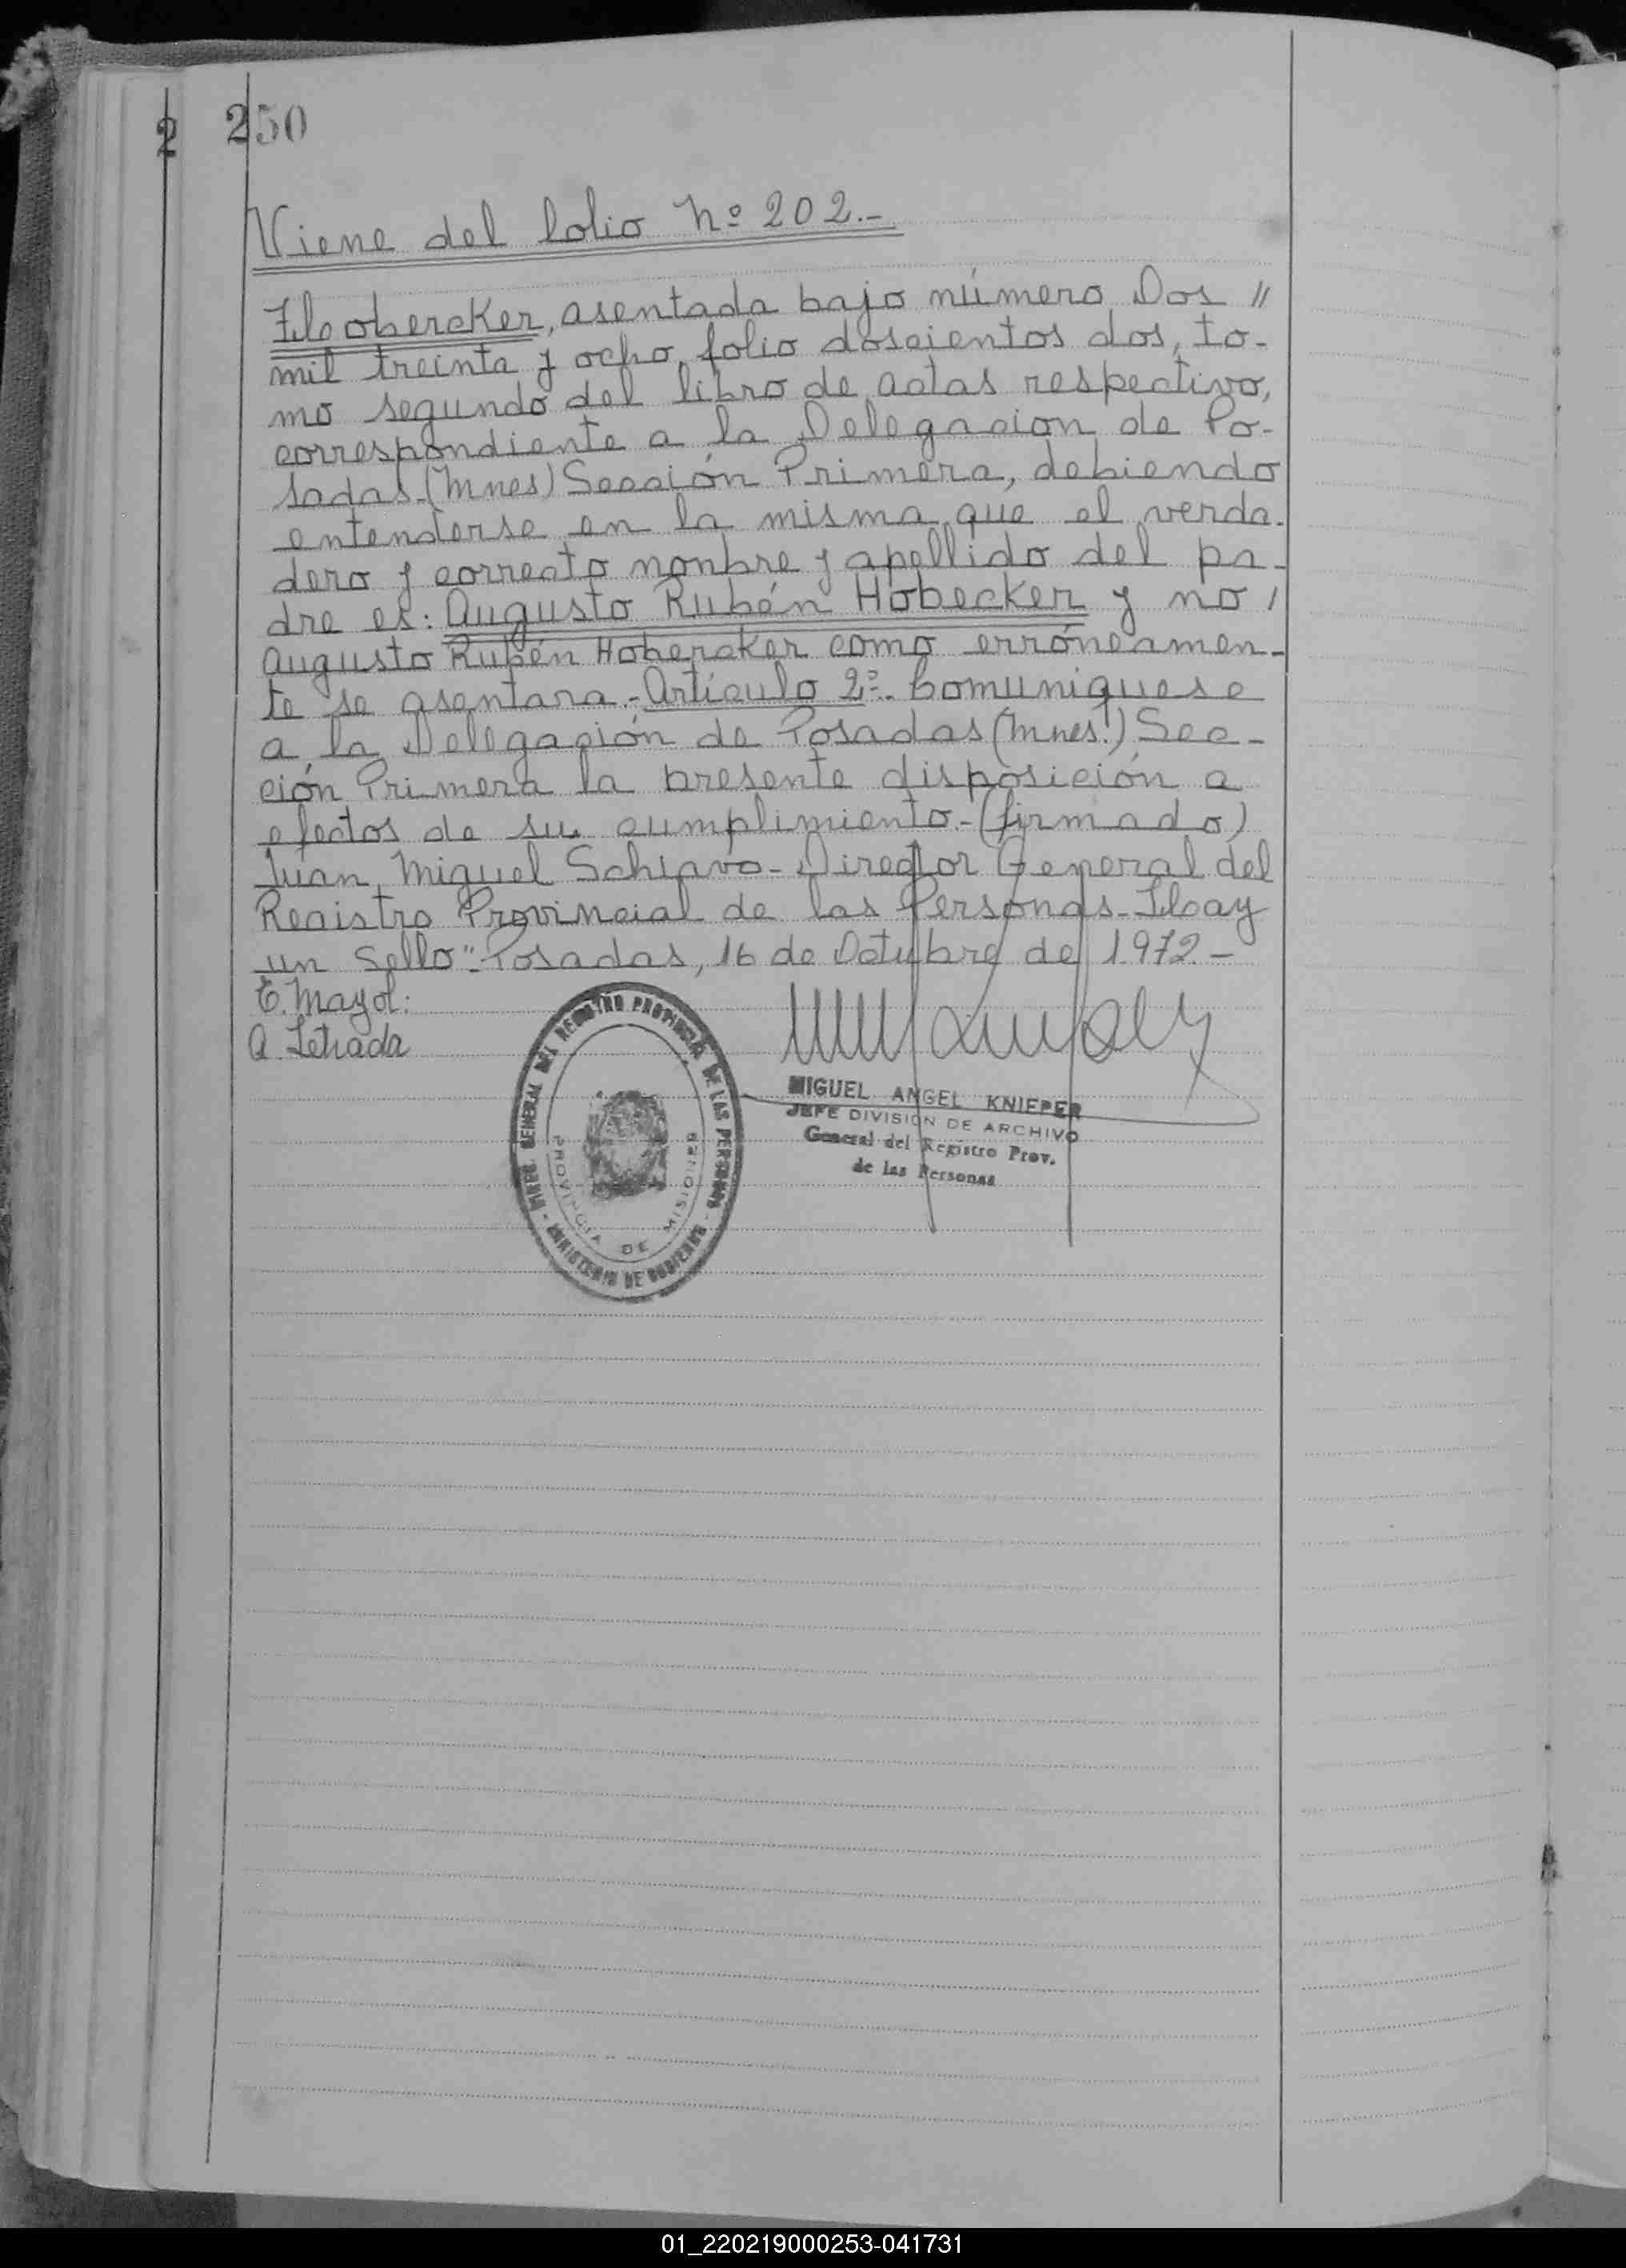 2 250
Viene del folio Nº 202.-
Hobercker, asentada bajo número Dos //
mil treinta y ocho, folio doscientos dos, to-
mo segundo del libro de actas respectivo,
correspondiente a la Delegacion de Po-
sadas (Mnes) Sección Primera, debiendo
entenderse en la misma que el verda-
dero y correcto nonbre y apellido del pa-
dre es: Augusto Rubén Hobecker y no /
Augusto Rubén Hobercker como erróneamen-
te se asentara.- Artículo 2º- Comuniquese
a la Delegación de Posadas (Mnes.) Sec-
ción Primera la presente disposición a
efectos de su cumplimiento.- (firmado)
Juan Miguel Schiavo - Director General del
Registro Provincial de las Personas - Hay
un Sello".- Posadas, 16 de Octubre de 1972.-
E. Mayol:
A. Letrada
DIREC. GENERAL DEL REGISTRO PROVINCIAL DE LAS PERSONAS - MINISTERIO DE GOBIERNO -
PROVINCIA DE MISIONES
MIGUEL ANGEL KNIEPER
JEFE DIVISION DE ARCHIVO
General del Registro Prov.
de las Personas
01_220219000253-041731